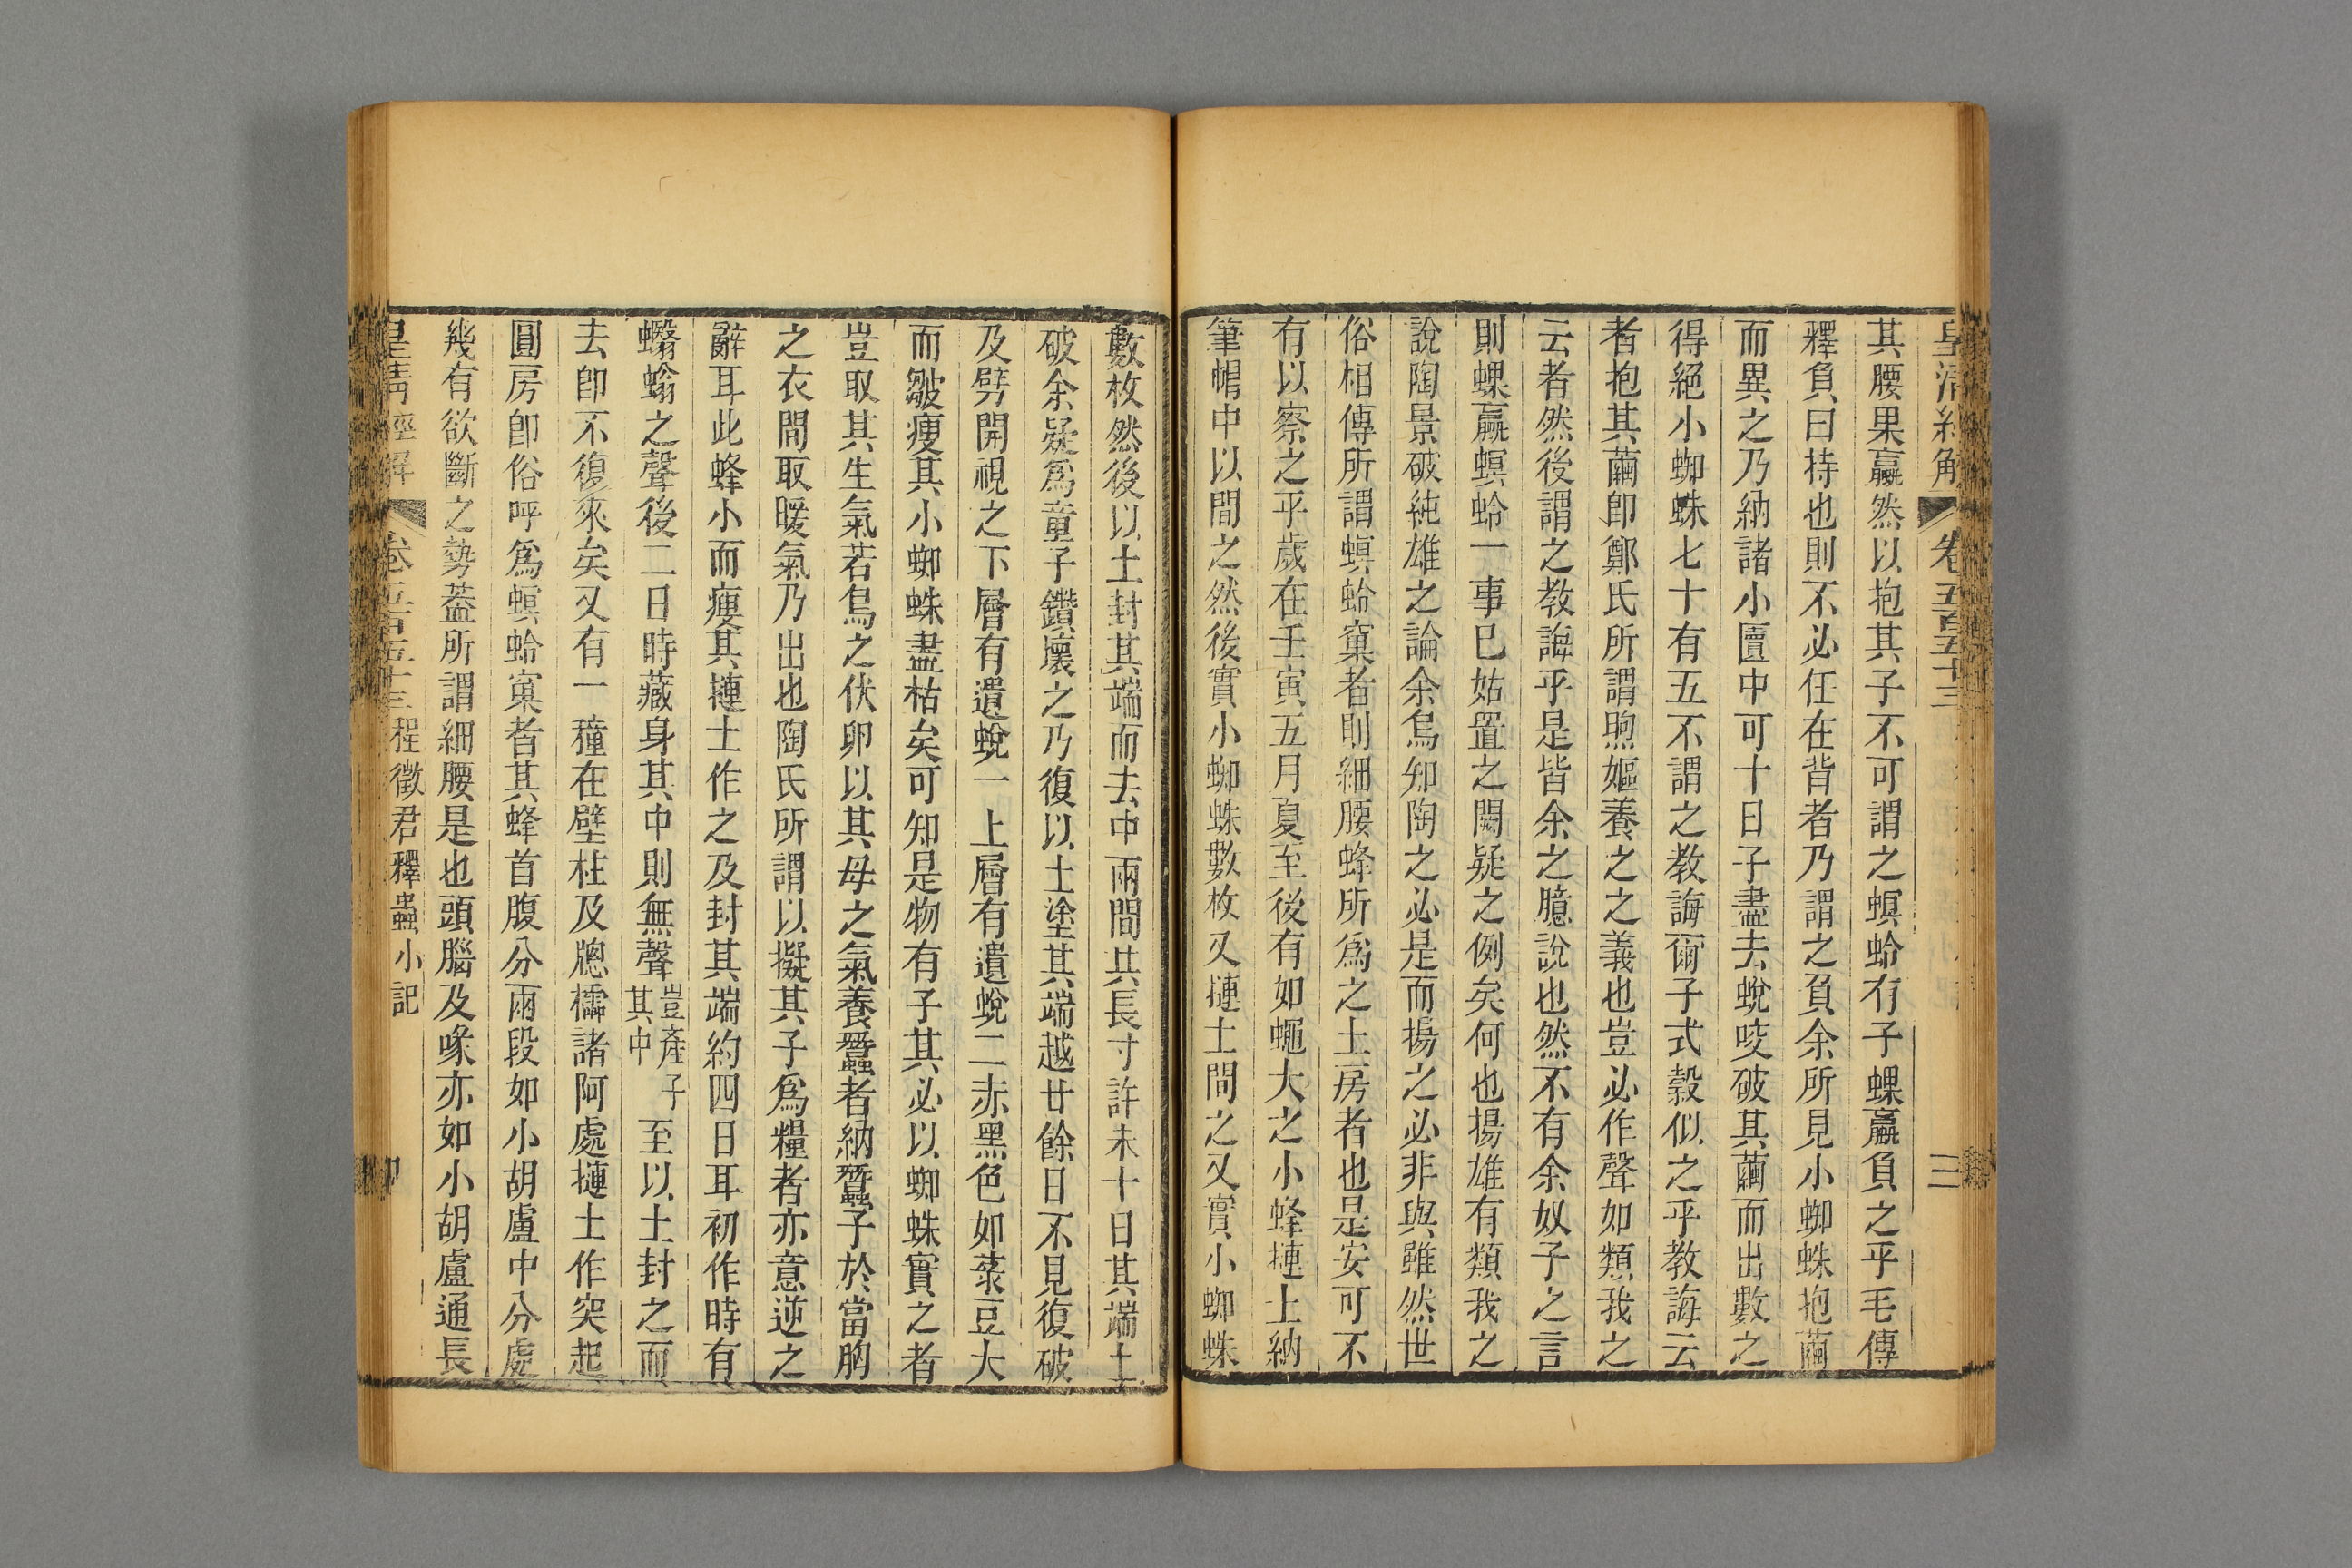 皇清經解 卷五百五十三 三
其腰果蠃然以抱其子不可謂之螟蛉有子蜾蠃負之乎毛傳
釋負曰持也則不必任在背者乃謂之負余所見小蜘蛛抱繭
而異之乃納諸小匵中可十日子盡去蛻咬破其繭而出數之
得絕小蜘蛛七十有五不謂之教誨爾子式穀似之乎教誨云
者抱其繭卽鄭氏所謂煦嫗養之之義也豈必作聲如類我之
云者然後謂之教誨乎是皆余之臆說也然不有余奴子之言
則蜾蠃螟蛉一事已姑置之闕疑之例矣何也揚雄有類我之
說陶景破純雄之論余烏知陶之必是而揚之必非與雖然世
俗相傳所謂螟蛉窠者則細腰蜂所爲之土房者也是安可不
有以察之乎歲在壬寅五月夏至後有如蠅大之小蜂摙土納
筆㡌中以間之然後實小蜘蛛數枚又摙土間之又實小蜘蛛
數枚然後以土封其端而去中兩間共長寸許未十日其端土
破余疑爲童子鑽壞之乃復以土塗其端越廿餘日不見復破
及劈開視之下層有遺蛻一上層有遺蛻二赤黑色如菉豆大
而皺瘦其小蜘蛛盡枯矣可知是物有子其必以蜘蛛實之者
豈取其生氣若鳥之伏卵以其母之氣養蠶者納蠶子於當胸
之衣間取暖氣乃出也陶氏所謂以擬其子爲糧者亦意逆之
辭耳此蜂小而瘦其摙土作之及封其端約四日耳初作時有
蠮螉之聲後二日時藏身其中則無聲豈產子其中至以土封之而
去卽不復來矣又有一種在壁柱及牕櫺諸阿處摙土作突起
圓房卽俗呼爲螟蛉窠者其蜂首腹分兩段如小胡盧中分處
幾有欲斷之勢蓋所謂細腰是也頭腦及喙亦如小胡盧通長
皇清經解 卷五百五十三 程徵君釋蟲小記